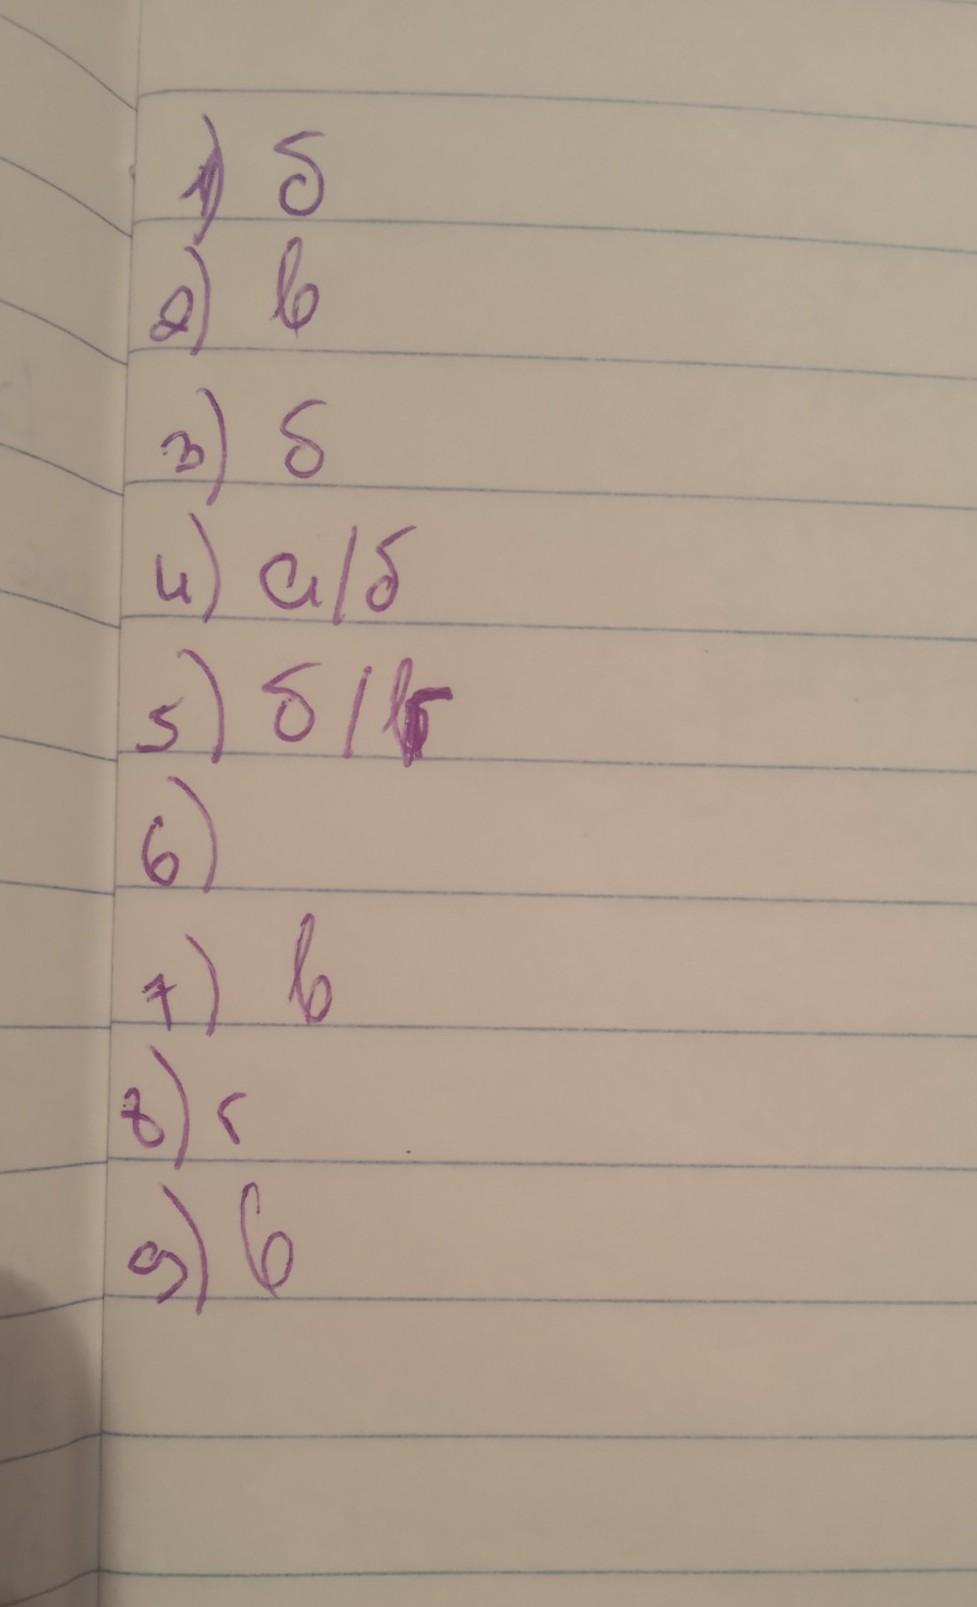 1) б
2) в
3) б
4) а/б
5) б/
6)
7) в
8) г
9) в